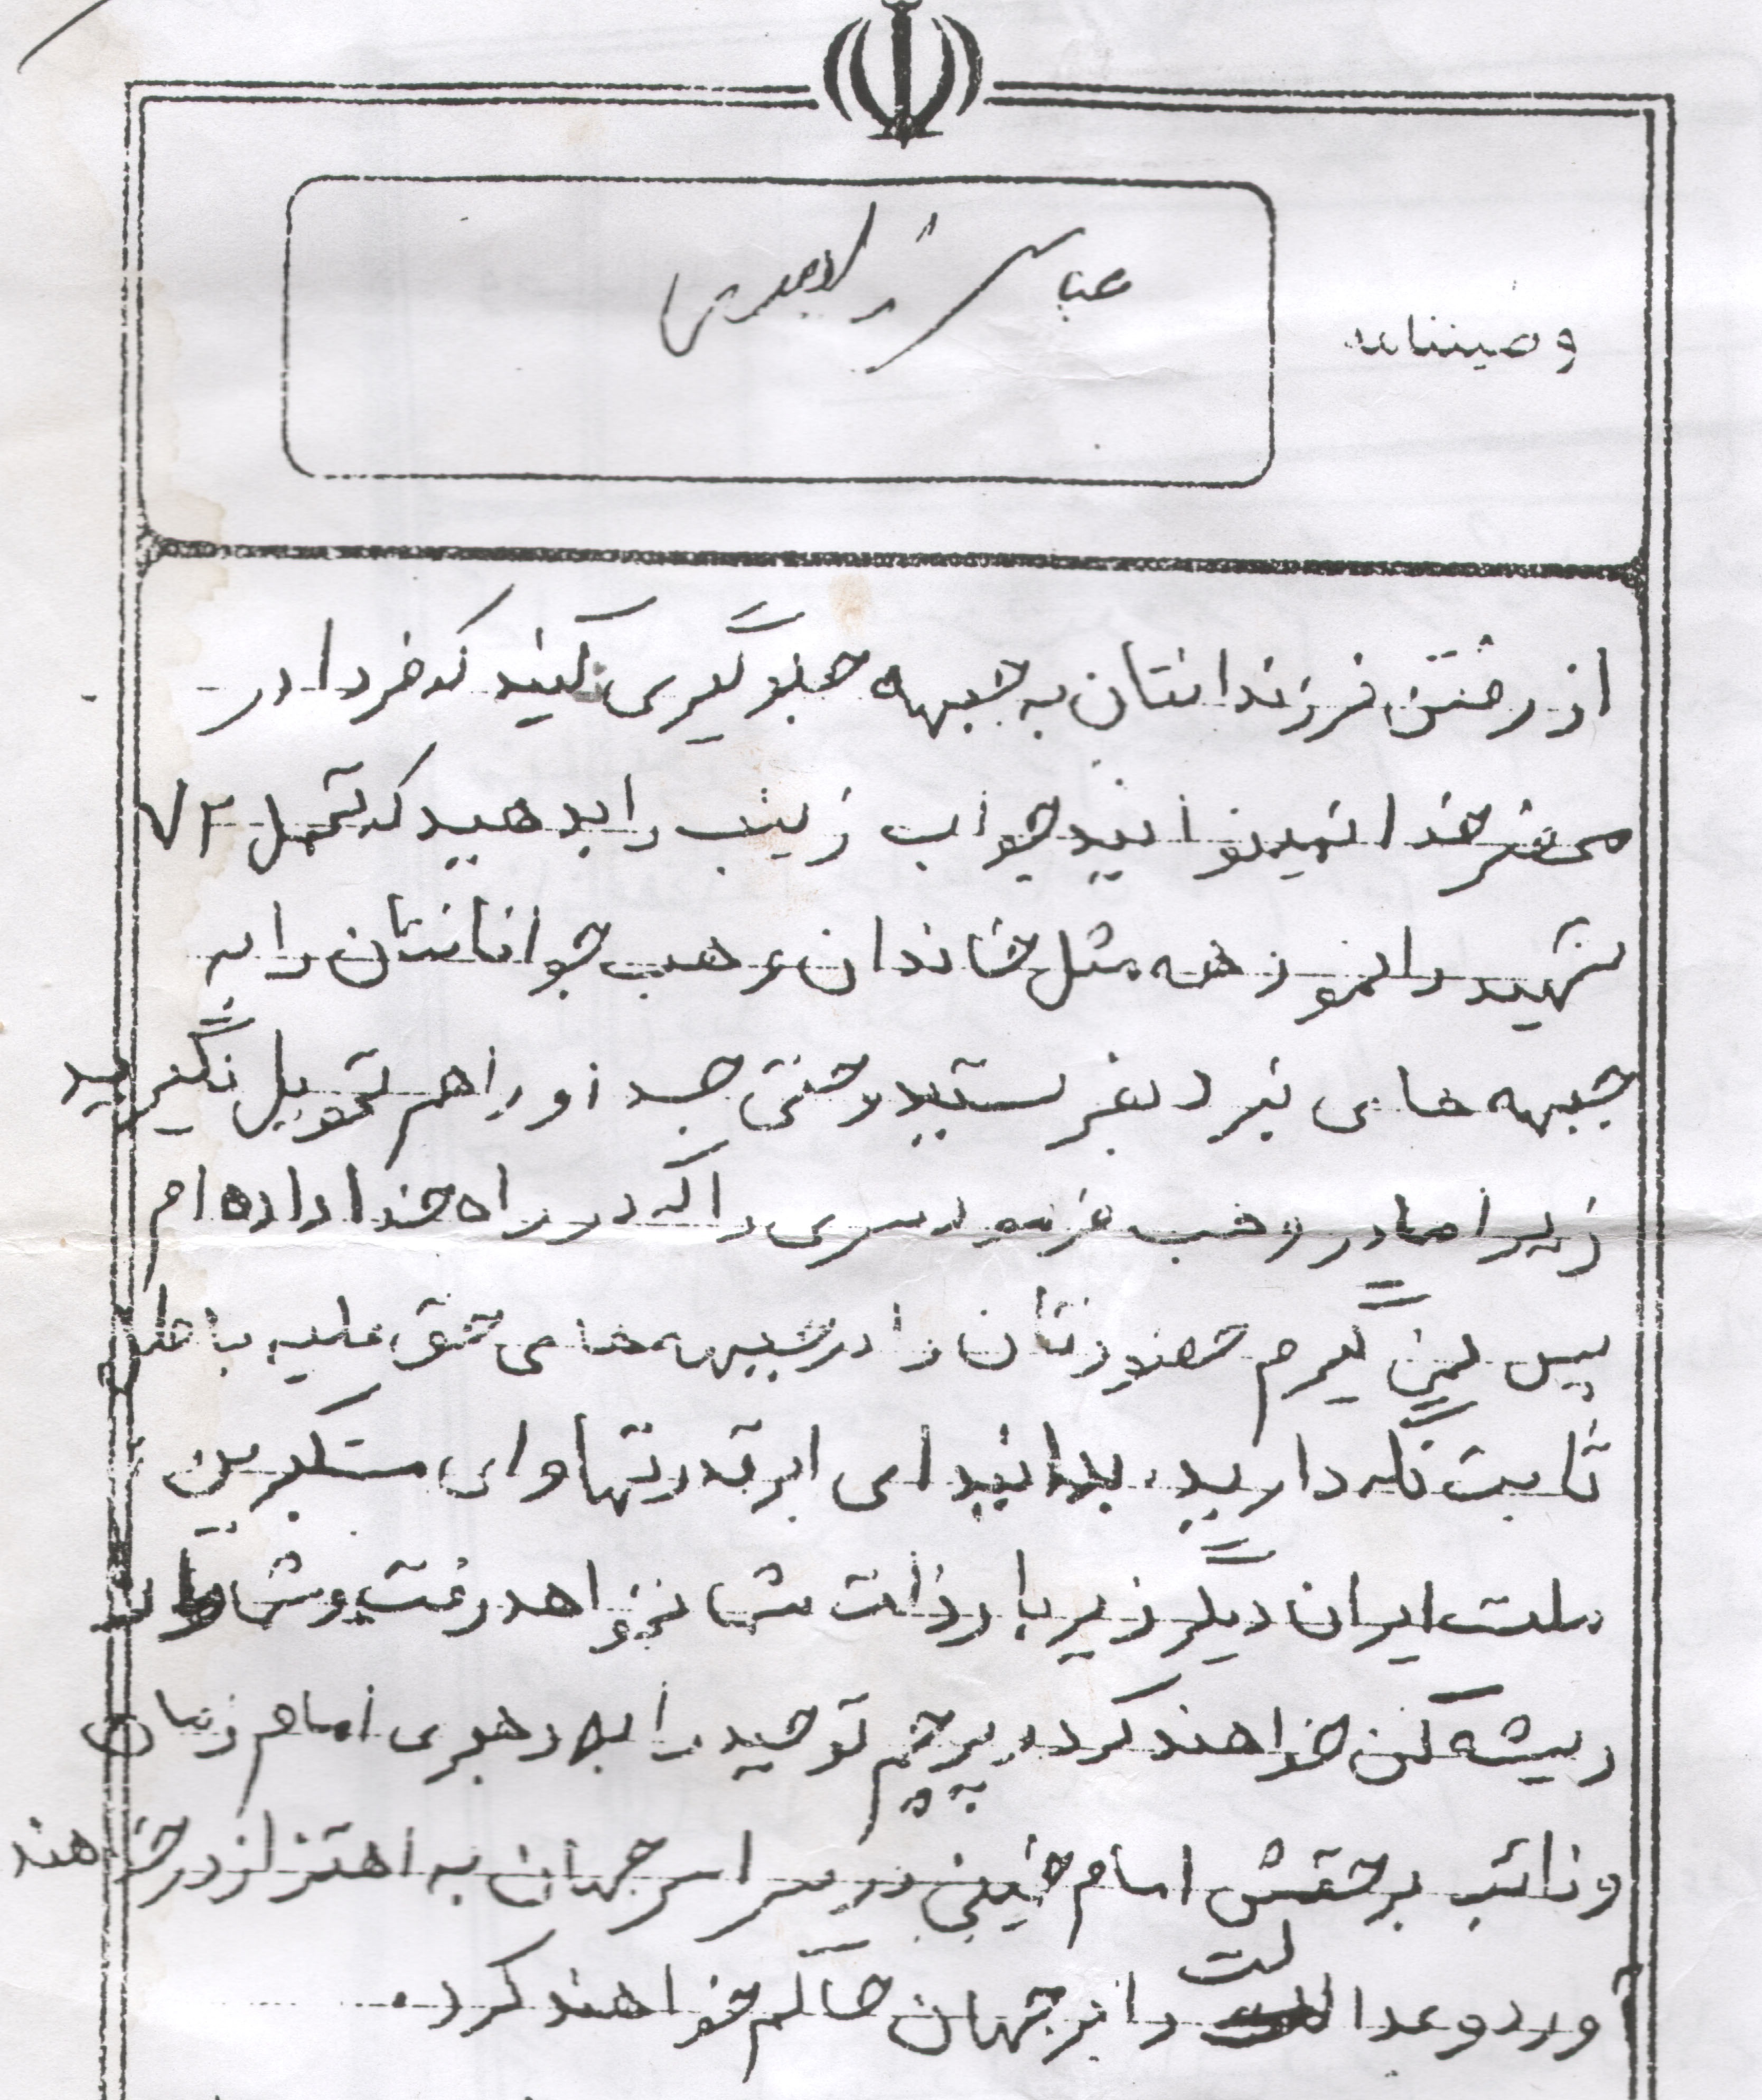 وصیتنامه
عباس شیر لاجوردی
از رفتن فرزندانتان به جبهه جلوگیری نکنید که فردا در
محضر خدا نمیتوانید جواب زینب را بدهید که تحمل ۷۲
شهید را نمود همه مثل خاندان وهب جوانانتان را به
جبهه های نبرد بفرستید و حتی جسد او را هم تحویل نگیرید
زیرا مادر وهب فرمود سری را که در راه خدا داده ام
پس نمی گیرم حضورتان را در جبهه های حق علیه باطل
ثابت نگه دارید، بدانید ای ابرقدرتها و ای مستکبرین
ملت ایران دیگر زیر بار ذلت شما نخواهد رفت و شما را
ریشه کن خواهند کرد و پرچم توحید را به رهبری امام زمان
و نائب برحقش امام خمینی در سراسر جهان به اهتزاز در خواهند
آورد و عدالت را بر جهان حاکم خواهند کرد.